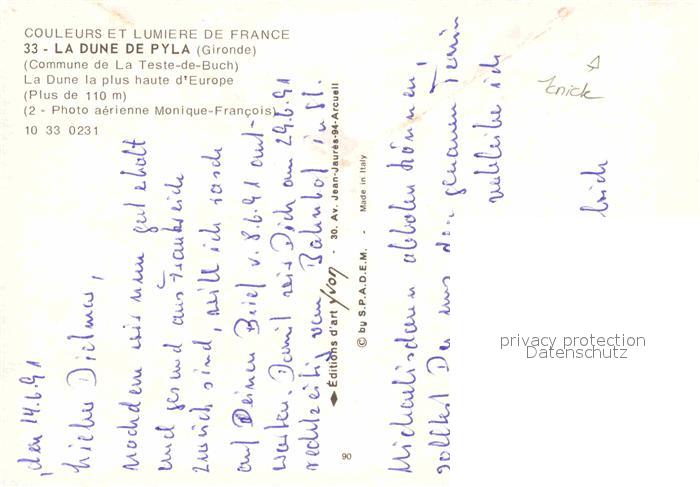 COULEURS ET LUMIERE DE FRANCE
33 - LA DUNE DE PYLA (Gironde)
(Commune de La Teste-de-Buch)
La Dune la plus haute d'Europe
(Plus de 110 m)
(2 - Photo aérienne Monique-François)
10 33 0231
den 14.6.91
Lieber Dietmar,
nachdem wir nun gut erholt
und gesund aus Frankreich
zurück sind, will ich rasch
auf Deinen Brief v. 8.6.91 ant-
worten. Damit wir Dich am 29.6.91
rechtzeitig vom Bahnhof in St.
Michaelisdonn abholen können,
solltest Du uns den genauen Termin
Erich
Knick
Éditions d'art yvon - 30, Av. Jean-Jaurès-94-Arcueil
© by S.P.A.D.E.M. - Made in Italy
90
privacy protection
Datenschutz